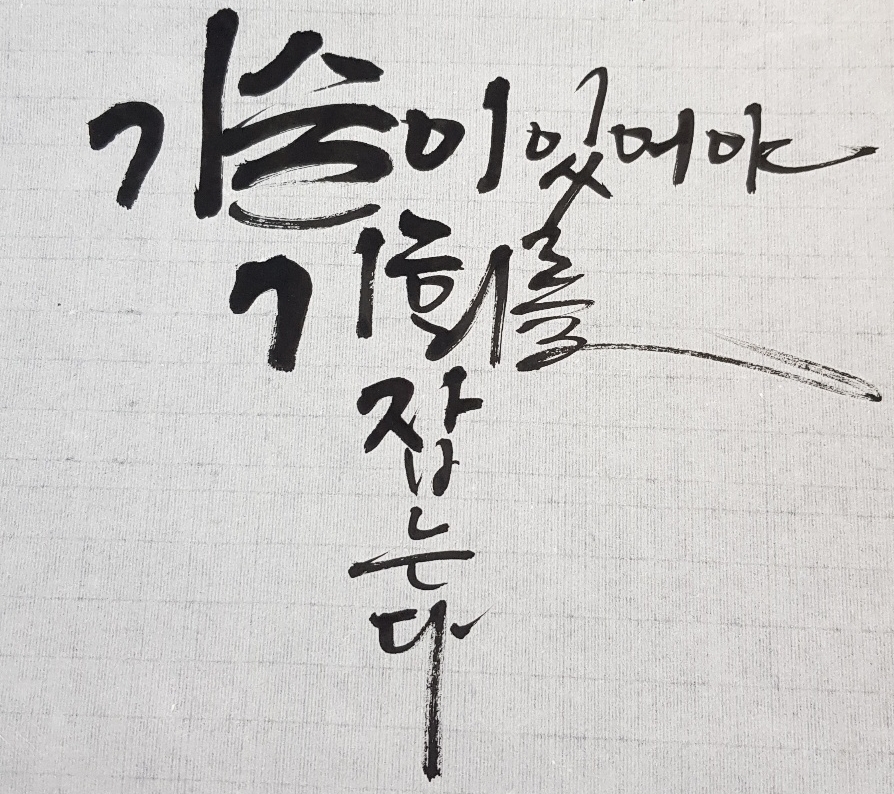 기술이 있어야
기회를
잡
는
다